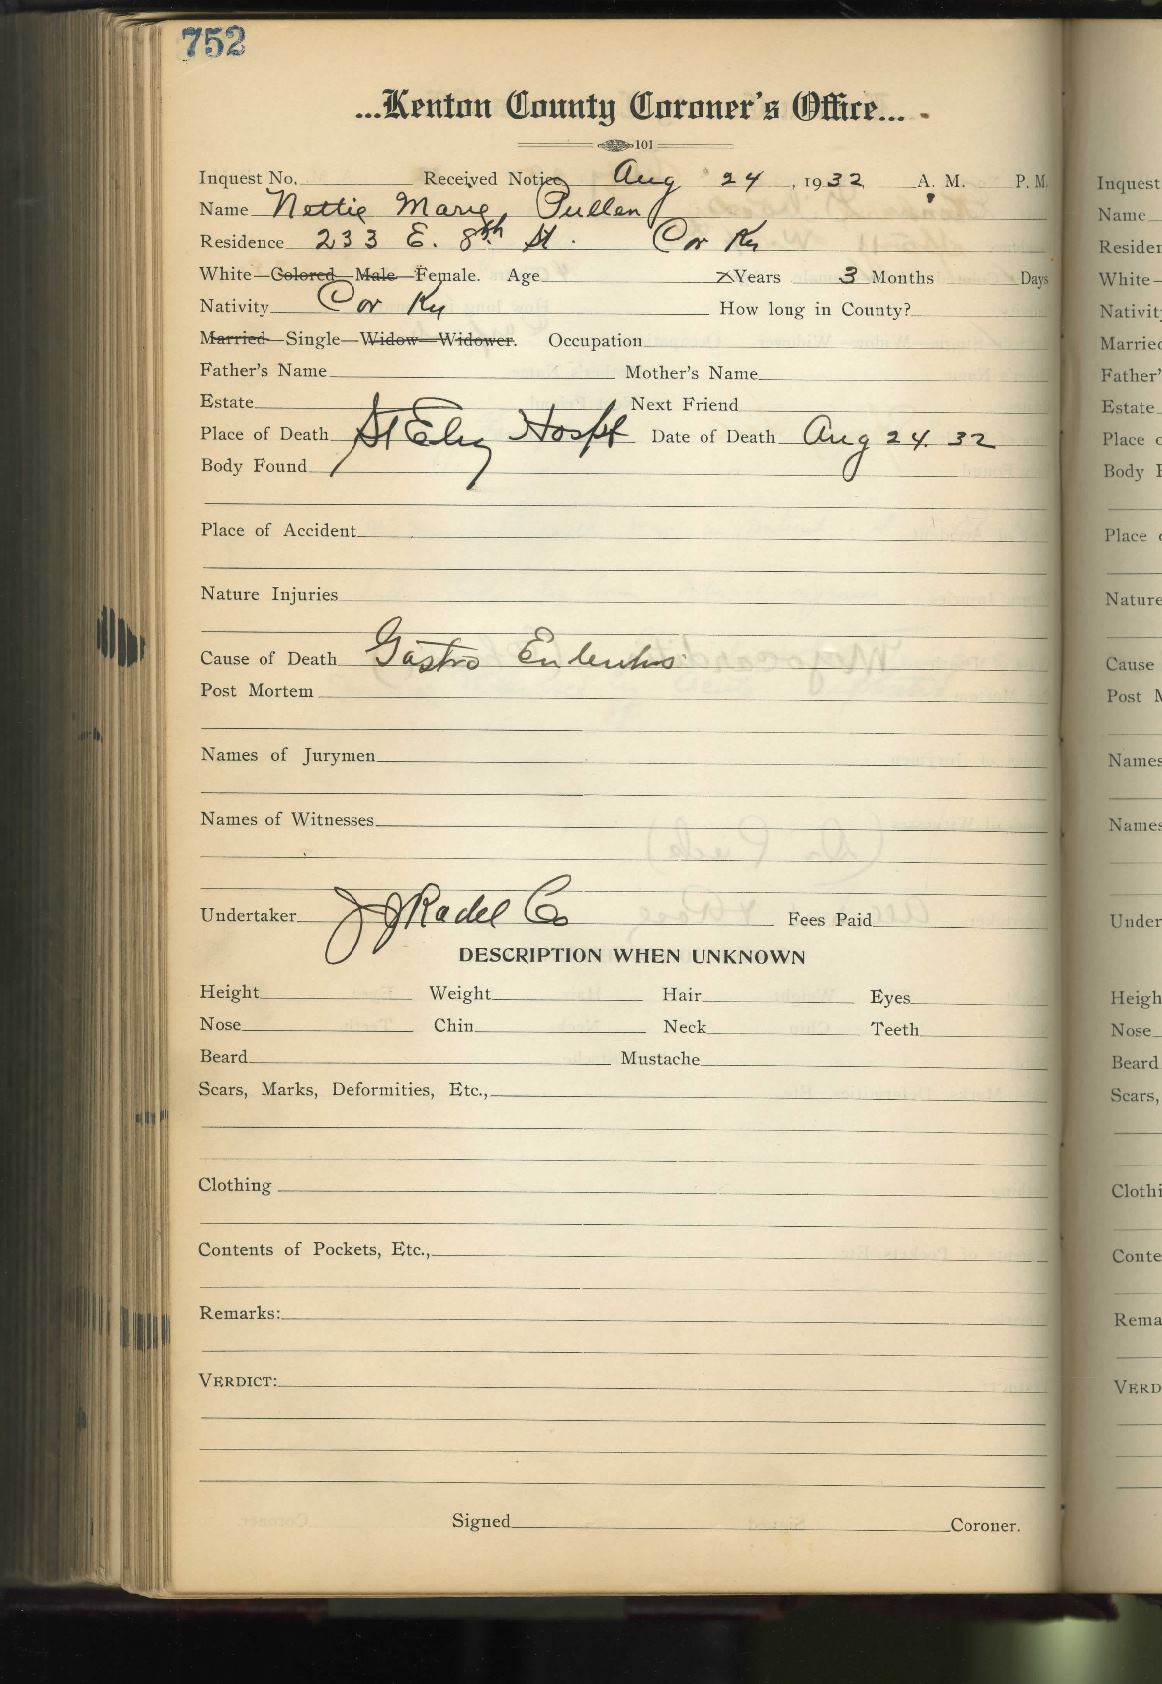 752
...Kenton County Coroner's Office...
101
Inquest No. Received Notice Aug 24, 1932, A. M. P. M.
Name Nettie Marie Pullen
Residence 233 E. 8th St. Cov Ky
White—Colored—Male—Female. Age Years 3 Months Days
Nativity Cov Ky How long in County?
Married—Single—Widow—Widower. Occupation
Father's Name Mother's Name
Estate Next Friend
Place of Death St Eliz Hospt Date of Death Aug 24. 32
Body Found
Place of Accident
Nature Injuries
Cause of Death Gastro Enteritis
Post Mortem
Names of Jurymen
Names of Witnesses
Undertaker J J Radel Co Fees Paid
DESCRIPTION WHEN UNKNOWN
Height Weight Hair Eyes
Nose Chin Neck Teeth
Beard Mustache
Scars, Marks, Deformities, Etc.,
Clothing
Contents of Pockets, Etc.,
Remarks:
VERDICT:
Signed Coroner.
Inquest
Name
Residen
White—
Nativity
Married
Father'
Estate
Place o
Body F
Place o
Nature
Cause
Post M
Names
Names
Under
Heigh
Nose
Beard
Scars,
Clothi
Conte
Rema
VERD